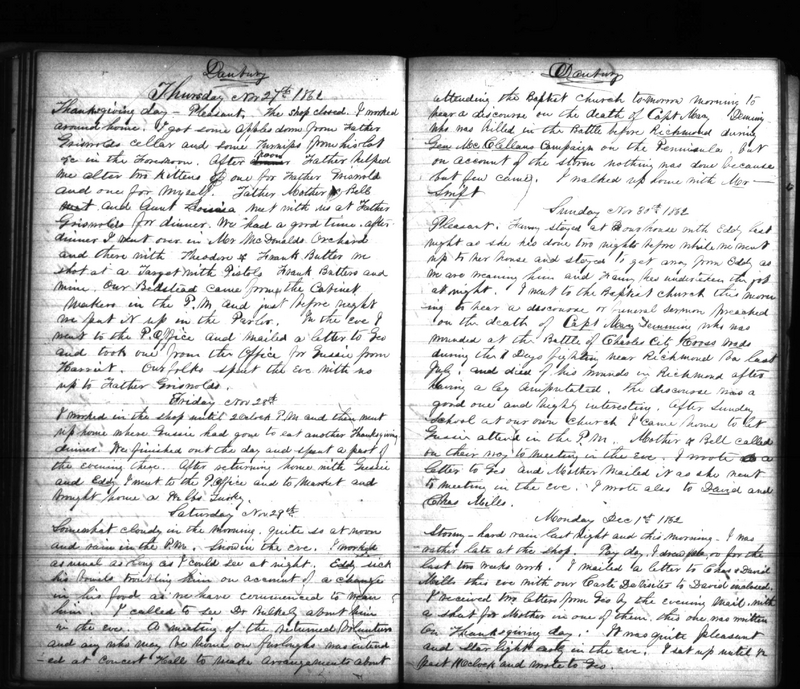 Danbury
Thursday Nov 27th 1862
Thanksgiving day - Pleasant. The shop closed. I worked
around home. I got some Apples down from Father
Griswolds cellar and some Turnips from his lot
&c in the Forenoon. After noon Father helped
me alter two kittens one for Father Griswold
and one for myself. Father Mother & Bell
and Aunt Louisa met with us at Father
Griswolds for dinner. We had a good time. After
dinner I went over in Mr McDonalds Orchard
and there with Theodore & Frank Butler we
shot at a Target with Pistols Frank Butlers and
mine. Our Bedstead came from the Cabinet
Makers in the P.M and just before night
we put it up in the Parlor. In the eve I
went to the P. Office and mailed a letter to Geo
and took one from the Office for Gussie from
Harriet. Our folks spent the eve with us
up to Father Griswolds.
Friday Nov 28th
I worked in the shop until 2 oclock P.M and then went
up home where Gussie had gone to eat another Thanksgiving
dinner. We finished out the day and spent a part of
the evening there. After returning home with Gussie
and Eddy I went to the P. Office and to Market and
brought home a
Saturday Nov 29th
Somewhat cloudy in the morning. quite so at noon
and rain in the P.M. Snow in the eve. I worked
as usual as long as I could see at night. Eddy sick
his bowels troubling him on account of a change
in his food as we have commenced to wean
him. I called to see Dr Bulkely about him
in the eve. A meeting of the returned Volunteers
and any who may be home on furloughs was intend
-ed at Concert Hall to make arrangements about
Danbury
attending the Baptist Church tomorrow morning to
hear a discourse on the death of Capt
who was killed in the Battle before Richmond during
Gen McClellans Campaign on the Peninsula. but
on account of the storm nothing was done because
but few came. I walked up home with Mr
Swift
Sunday Nov 30th 1862
Pleasant. Fanny stayed at our house with Eddy last
night as she has done two nights before while we went
up to her house and stayed to get away from Eddy as
we are weaning him and Fanny has undertaken the job
at night. I went to the Baptist church this morn
-ing to hear a discourse or funeral sermon preached
on the death of Capt who was
wounded at the Battle of Charles City Cross roads
during the 8 Days fighting near Richmond Va last
July, and died of his wounds in Richmond after
having a leg amputated. The discourse was a
good one and highly interesting. After Sunday
School at our own Church I came home to let
Gussie attend in the P.M. Mother & Bell called
on their way to meeting in the eve. I wrote a
letter to Geo and Mother Mailed it as she went
to meeting in the eve. I wrote also to David and
Chas Mills.
Monday Dec 1st 1862
Stormy - hard rain last night and this morning. I was
rather late at the shop. Pay day. I drew for the
last two weeks work. I mailed a letter to Chas & David
Mills this eve with our Carte De Visite to David inclosed.
I received two letters from Geo by the evening Mail with
a sheet for Mother in one of them. this one was written
on Thanksgiving day. It was quite pleasant
and star light early in the eve. I sat up until ½
past 11 oclock and wrote to Geo.